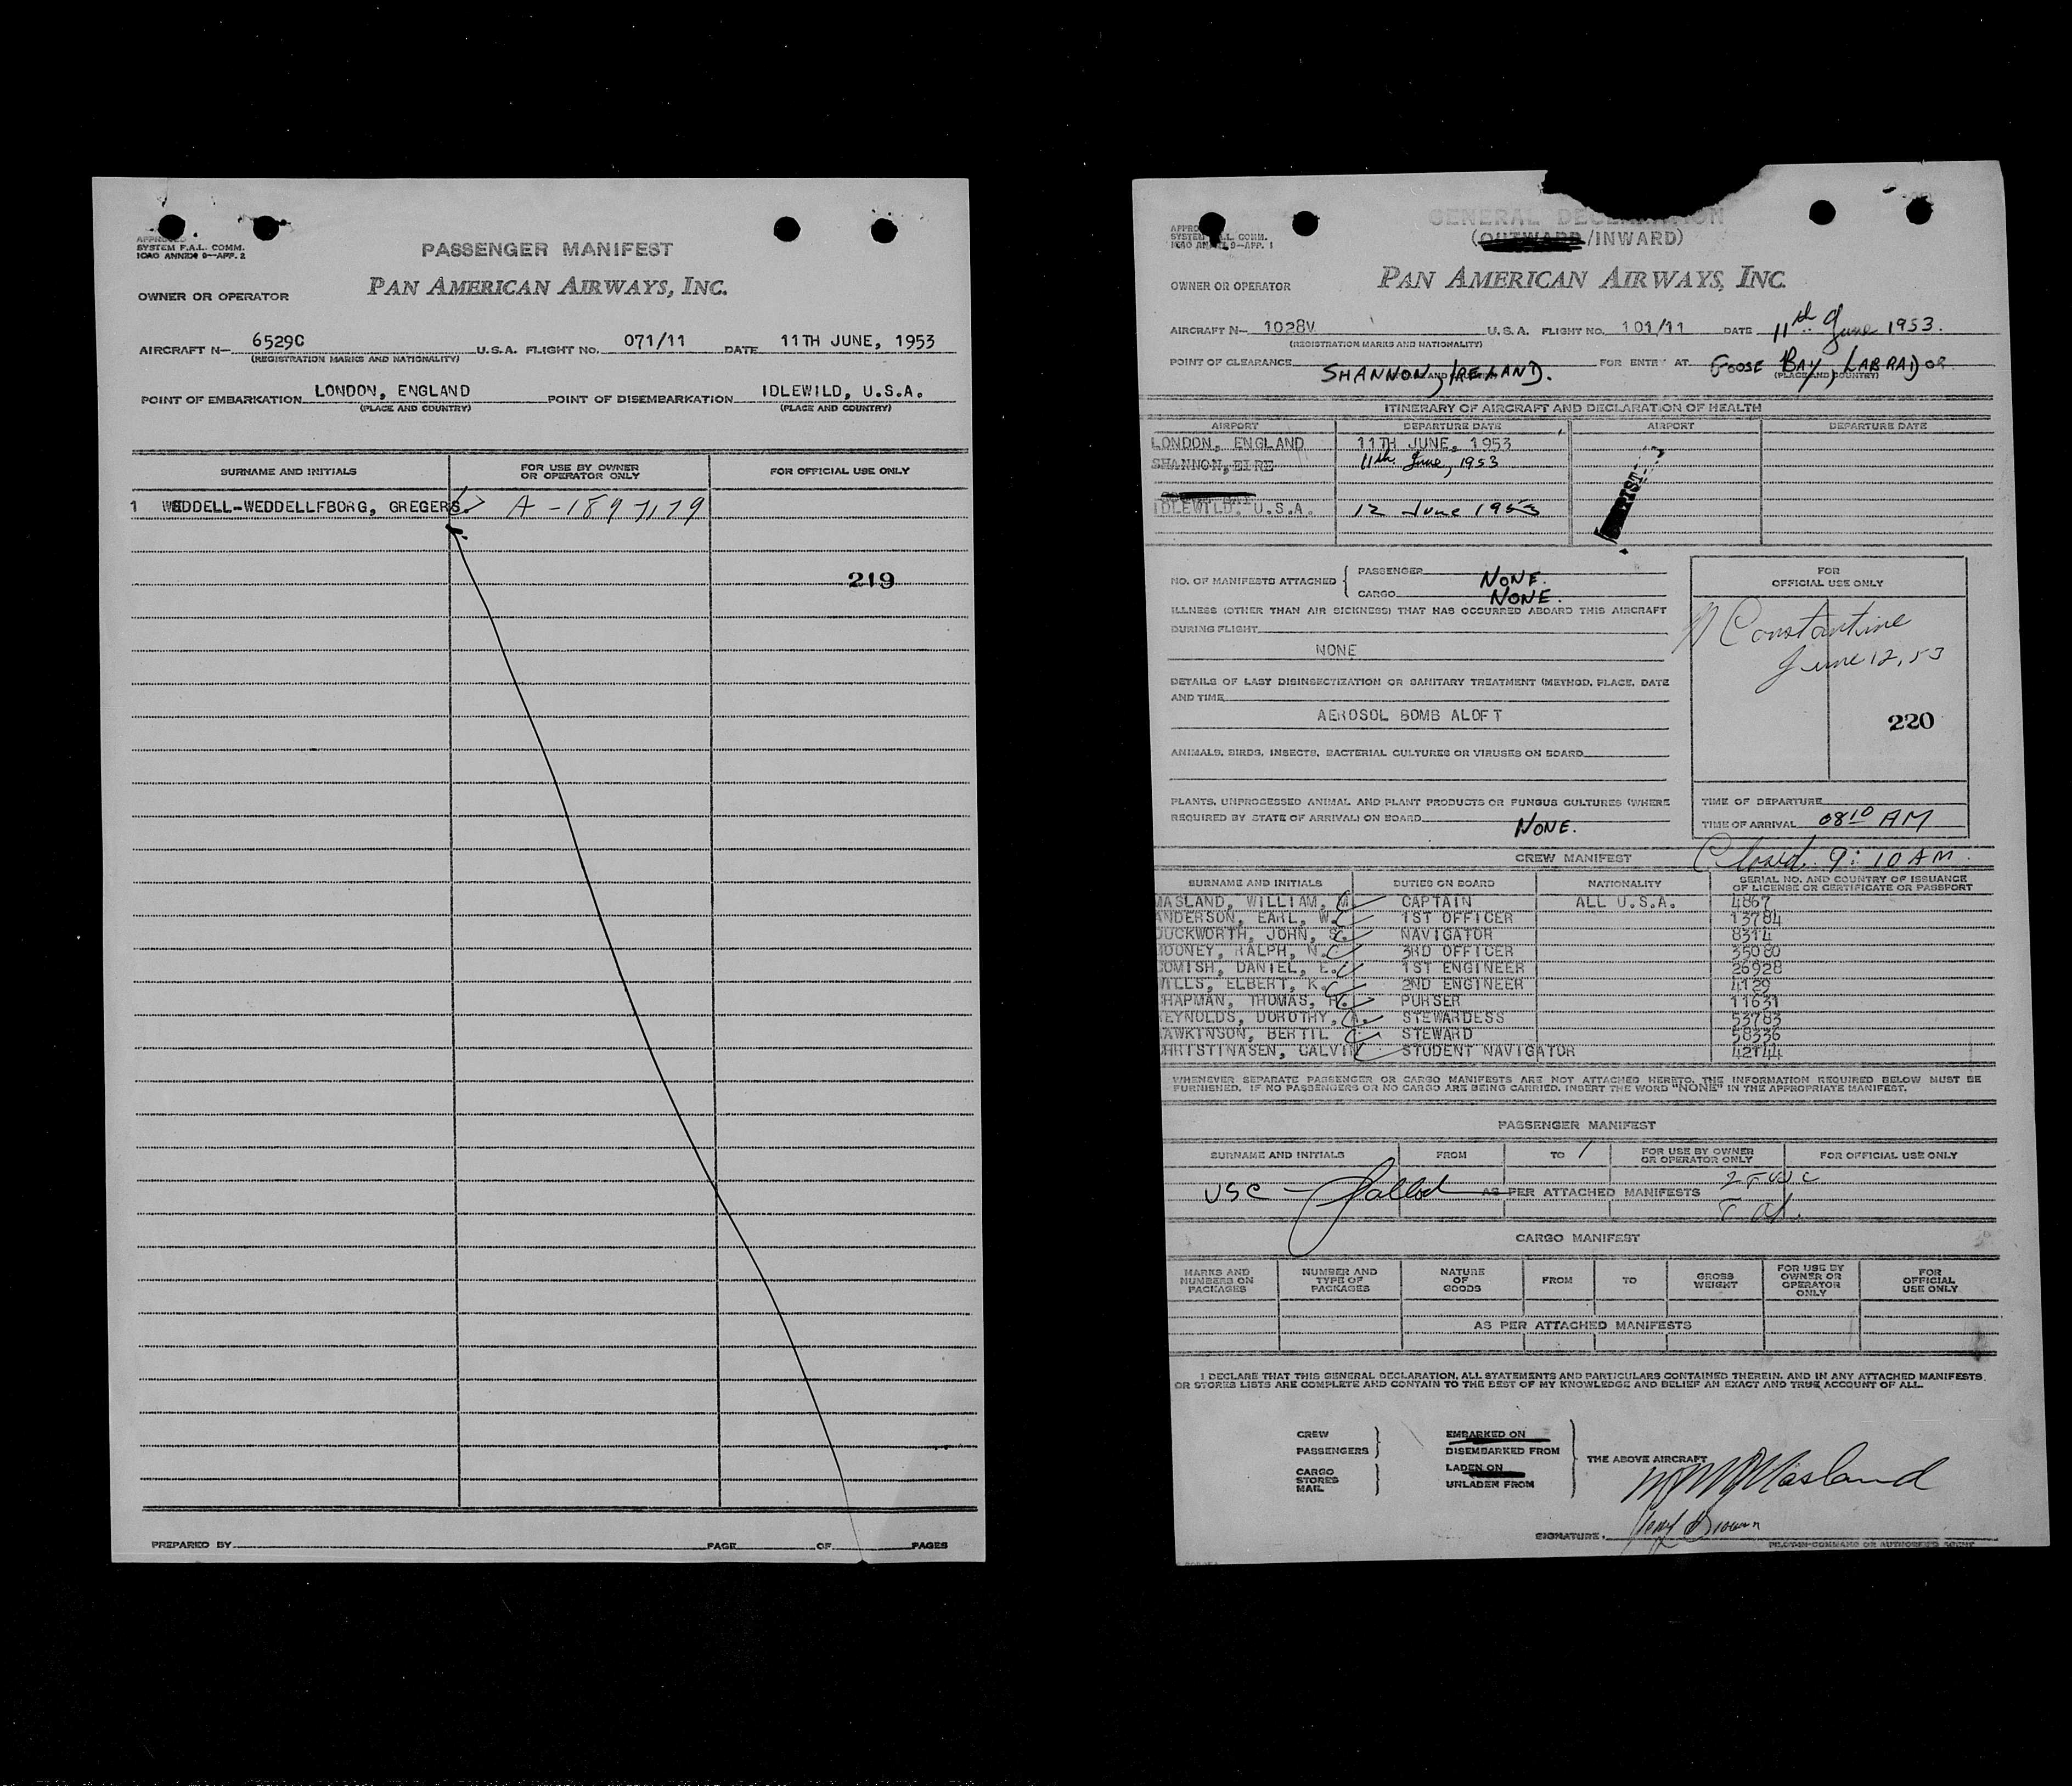 APPROVED
SYSTEM F.A.L. COMM.
ICAO ANNEX 9—APP. 2
PASSENGER MANIFEST
PAN AMERICAN AIRWAYS, INC.
OWNER OR OPERATOR
AIRCRAFT N— 6529C U.S.A. FLIGHT NO. 071/11 DATE 11TH JUNE, 1953
(REGISTRATION MARKS AND NATIONALITY)
POINT OF EMBARKATION LONDON, ENGLAND POINT OF DISEMBARKATION IDLEWILD, U.S.A.
(PLACE AND COUNTRY) (PLACE AND COUNTRY)
SURNAME AND INITIALS FOR USE BY OWNER OR OPERATOR ONLY FOR OFFICIAL USE ONLY
1 WEDDELL-WEDDELLFBORG, GREGERS.
219
PREPARED BY PAGE OF PAGES
GENERAL
(OUTWARD/INWARD)
SYSTEM F.A.L. COMM.
ICAO ANNEX 9—APP. 1
PAN AMERICAN AIRWAYS, INC.
OWNER OR OPERATOR
AIRCRAFT N— 1028V U.S.A. FLIGHT NO. 101/11 DATE 11th June 1953.
(REGISTRATION MARKS AND NATIONALITY)
POINT OF CLEARANCE SHANNON, IRELAND. FOR ENTRY AT GOOSE BAY, LABRADOR
(PLACE AND COUNTRY)
ITINERARY OF AIRCRAFT AND DECLARATION OF HEALTH
AIRPORT DEPARTURE DATE AIRPORT DEPARTURE DATE
LONDON, ENGLAND 11TH JUNE, 1953
SHANNON, EIRE 11th June, 1953
IDLEWILD, U.S.A. 12 June 1953
NO. OF MANIFESTS ATTACHED { PASSENGER NONE.
CARGO NONE.
ILLNESS (OTHER THAN AIR SICKNESS) THAT HAS OCCURRED ABOARD THIS AIRCRAFT
DURING FLIGHT
NONE
DETAILS OF LAST DISINSECTIZATION OR SANITARY TREATMENT (METHOD, PLACE, DATE
AND TIME
AEROSOL BOMB ALOFT
ANIMALS, BIRDS, INSECTS, BACTERIAL CULTURES OR VIRUSES ON BOARD
PLANTS, UNPROCESSED ANIMAL AND PLANT PRODUCTS OR FUNGUS CULTURES (WHERE
REQUIRED BY STATE OF ARRIVAL) ON BOARD
NONE.
FOR
OFFICIAL USE ONLY
Constantine
June 12, 53
220
TIME OF DEPARTURE
TIME OF ARRIVAL 0810 AM
Closed 9:10 AM.
CREW MANIFEST
SURNAME AND INITIALS DUTIES ON BOARD NATIONALITY SERIAL NO. AND COUNTRY OF ISSUANCE OF LICENSE OR CERTIFICATE OR PASSPORT
MASLAND, WILLIAM, M. CAPTAIN ALL U.S.A. 4867
ANDERSON, EARL, W. 1ST OFFICER 13784
DUCKWORTH, JOHN, NAVIGATOR 8314
MOONEY, RALPH, N. 3RD OFFICER 35080
COMISH, DANIEL, E. 1ST ENGINEER 26928
WILLS, ELBERT, K. 2ND ENGINEER 4129
CHAPMAN, THOMAS, PURSER 11631
REYNOLDS, DOROTHY, STEWARDESS 53783
HAWKINSON, BERTIL STEWARD 58336
CHRISTINASEN, CALVIN STUDENT NAVIGATOR
WHENEVER SEPARATE PASSENGER OR CARGO MANIFESTS ARE NOT ATTACHED HERETO, THE INFORMATION REQUIRED BELOW MUST BE
FURNISHED. IF NO PASSENGERS OR NO CARGO ARE BEING CARRIED, INSERT THE WORD "NONE" IN THE APPROPRIATE MANIFEST.
PASSENGER MANIFEST
SURNAME AND INITIALS FROM TO FOR USE BY OWNER OR OPERATOR ONLY FOR OFFICIAL USE ONLY
USC — AS PER ATTACHED MANIFESTS
CARGO MANIFEST
MARKS AND NUMBERS ON PACKAGES NUMBER AND TYPE OF PACKAGES NATURE OF GOODS FROM TO GROSS WEIGHT FOR USE BY OWNER OR OPERATOR ONLY FOR OFFICIAL USE ONLY
AS PER ATTACHED MANIFESTS
I DECLARE THAT THIS GENERAL DECLARATION, ALL STATEMENTS AND PARTICULARS CONTAINED THEREIN, AND IN ANY ATTACHED MANIFESTS,
OR STORES LISTS ARE COMPLETE AND CONTAIN TO THE BEST OF MY KNOWLEDGE AND BELIEF AN EXACT AND TRUE ACCOUNT OF ALL.
CREW EMBARKED ON
PASSENGERS DISEMBARKED FROM
THE ABOVE AIRCRAFT
CARGO LADEN ON
STORES
MAIL UNLADEN FROM
Masland
Brown
SIGNATURE.
PILOT-IN-COMMAND OR AUTHORIZED AGENT